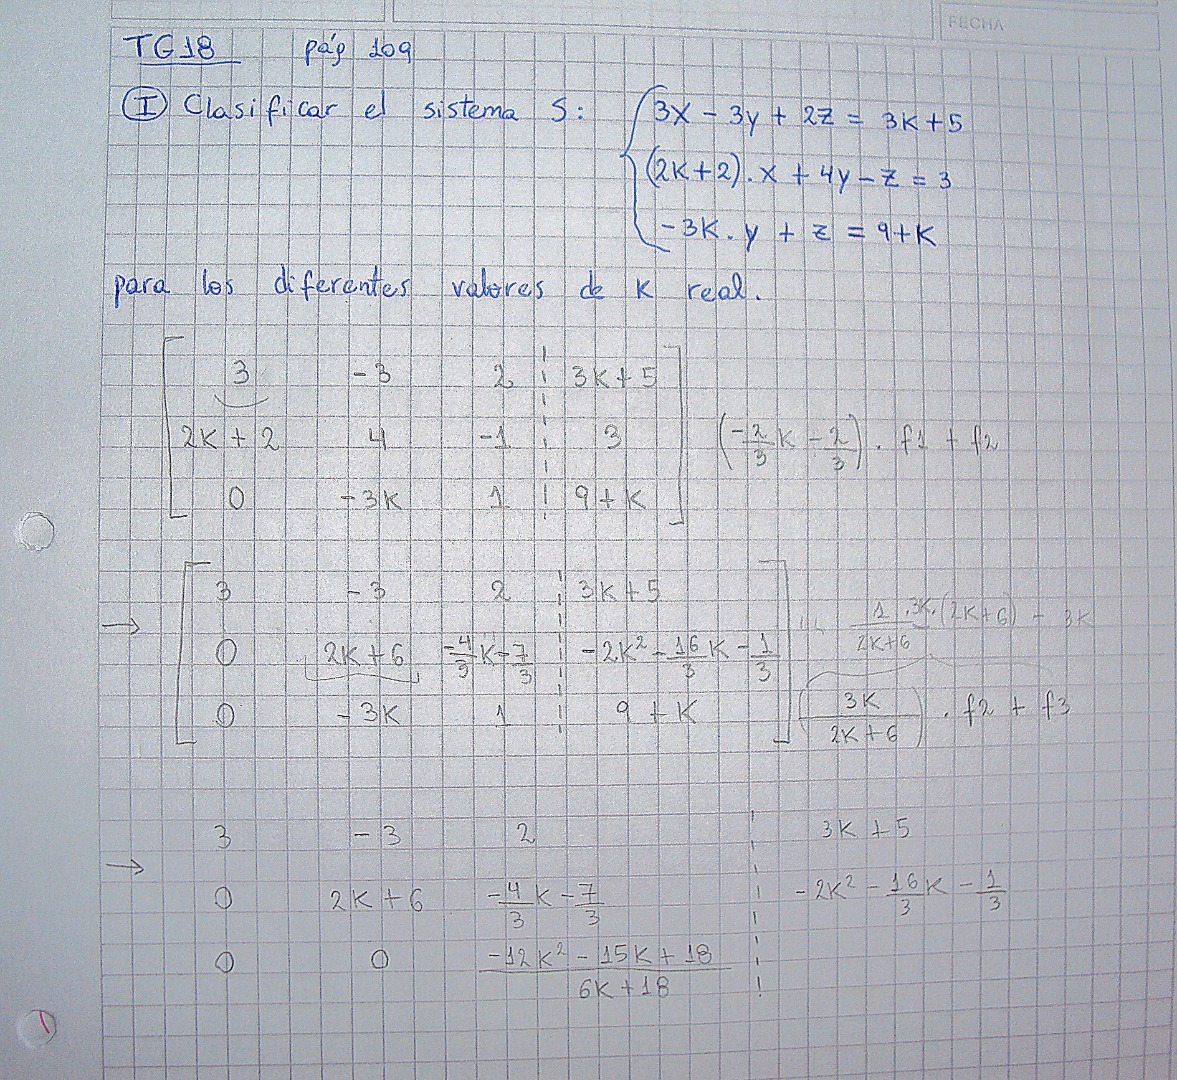 FECHA
TG18 pág 109
(I) Clasificar el sistema S: 3x - 3y + 2z = 3K+5
(2K+2).x + 4y - z = 3
-3K.y + z = 9+K
para los diferentes valores de K real.
3 -3 2 3K+5
2K+2 4 -1 3 (-2/3 K - 2/3) . f1 + f2
0 -3K 1 9+K
→ 3 -3 2 3K+5
0 2K+6 -4/3 K - 7/3 -2K² - 16/3 K - 1/3 1/(2K+6) .3K.(2K+6) - 3K
0 -3K 1 9+K (3K/(2K+6)) . f2 + f3
→ 3 -3 2 3K+5
0 2K+6 -4/3 K - 7/3 -2K² - 16/3 K - 1/3
0 0 (-12K² - 15K + 18)/(6K+18)